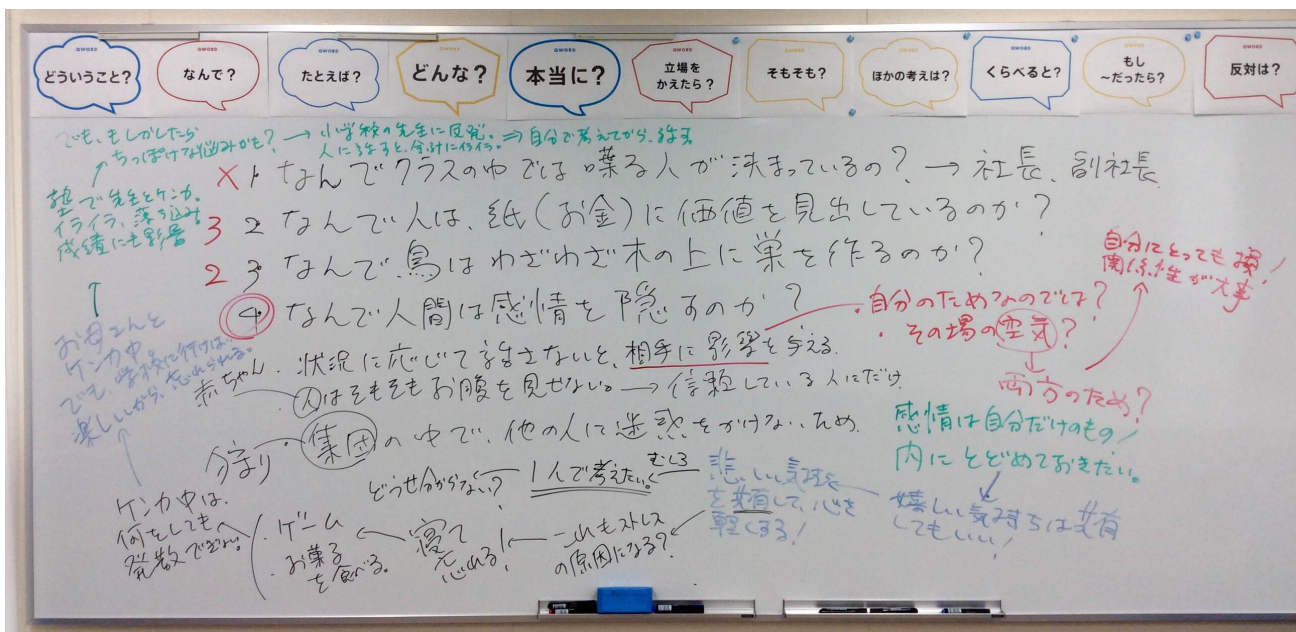 QWORD
どういうこと？
QWORD
なんで？
QWORD
たとえば？
QWORD
どんな？
QWORD
本当に？
QWORD
立場を
かえたら？
QWORD
そもそも？
QWORD
ほかの考えは？
QWORD
くらべると？
QWORD
もし
～だったら？
QWORD
反対は？
でも、もしかしたら
ちっぽけな悩みかも？
→ 小学校の先生に反発。
人に話すと、余計にイライラ。
⇒ 自分で考えてから、話す
塾で先生とケンカ。
イライラ、落ち込み。
成績にも影響
× 1 なんでクラスの中では喋る人が決まっているの？ → 社長、副社長
3 2 なんで人は、紙（お金）に価値を見出しているのか？
2 3 なんで鳥はわざわざ木の上に巣を作るのか？
4 なんで人間は感情を隠すのか？
・自分のためなのでは？
・その場の空気？
両方のため？
自分にとっても損！
関係性が大事
お母さんと
ケンカ中
でも、学校に行けば
楽しいから、忘れられる。
・状況に応じて話さないと、相手に影響を与える。
赤ちゃん
・人はそもそもお腹を見せない。→ 信頼している人にだけ
・集団の中で、他の人に迷惑をかけないため
感情は自分だけのもの！
内にとどめておきたい。
嬉しい気持ちは共有
してもいい！
悲しい気持ち
を共有して、心を
軽くする！
むしろ
1人で考えたい。
どうせ分からない？
これもストレス
の原因になる？
寝て
忘れる！
・ゲーム
・お菓子
を食べる。
ケンカ中は、
何をしても
発散できない。